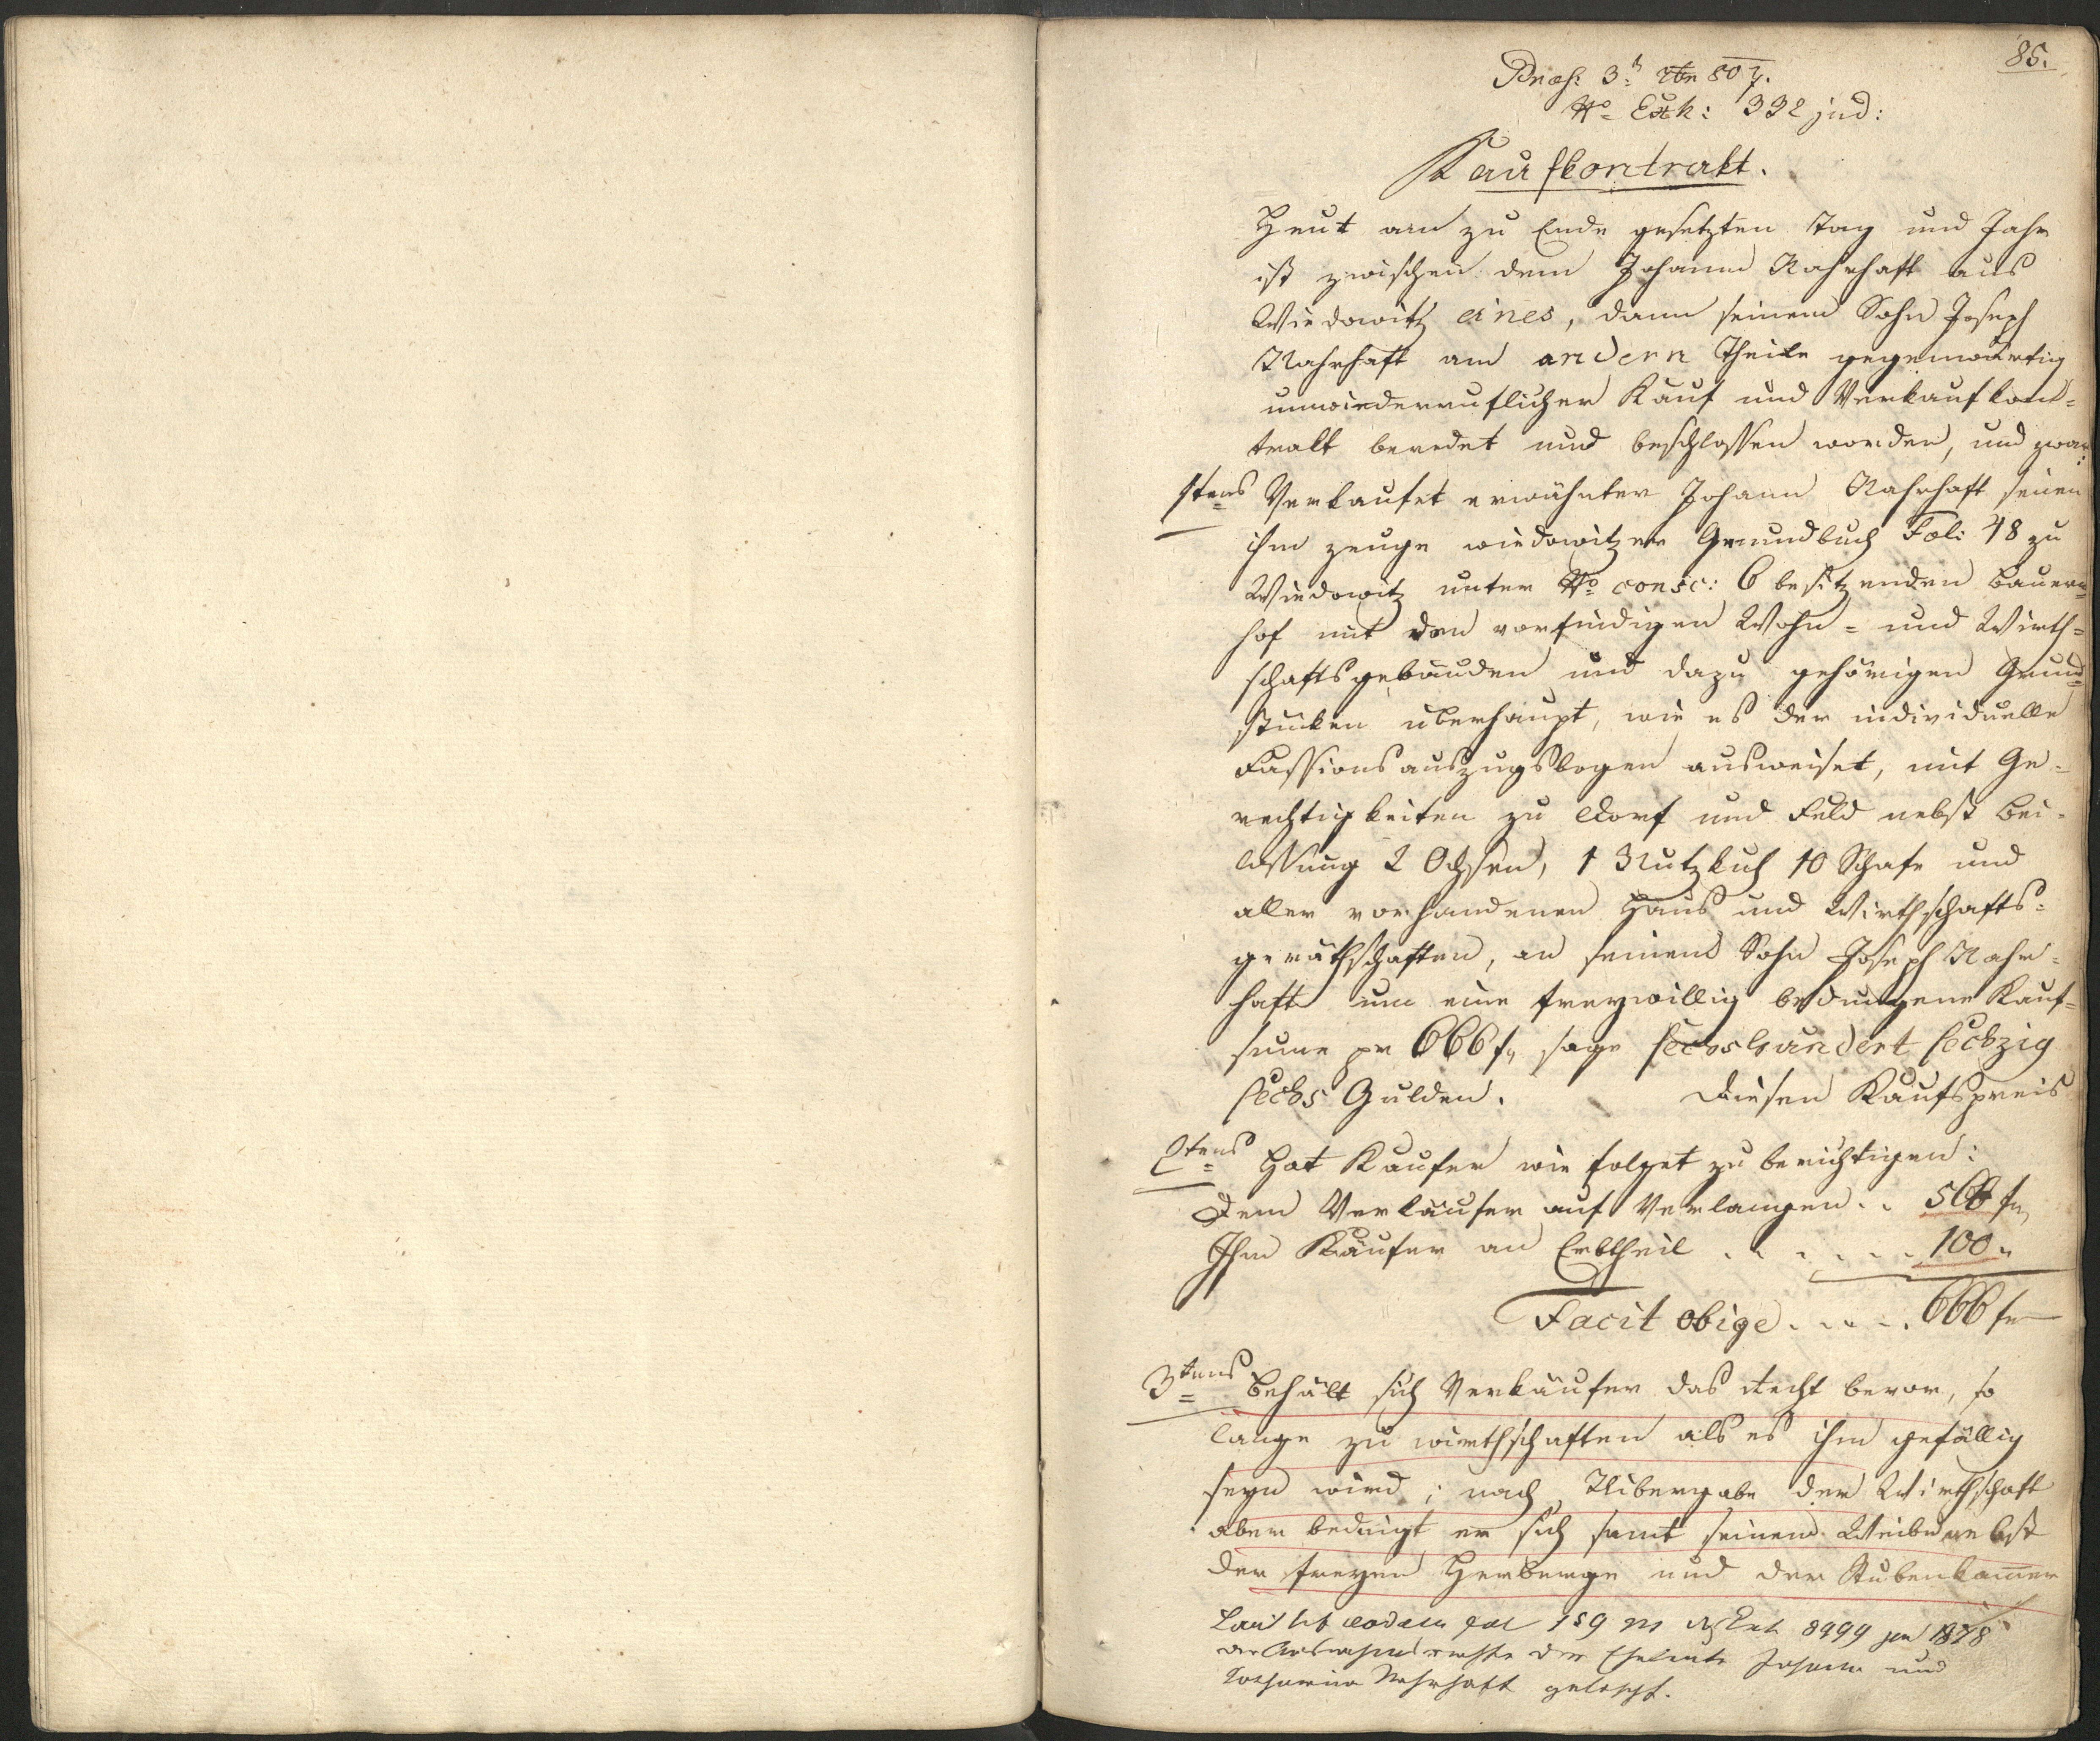 85.
Præs: 3: 807.
No Exh: 332 jud:
Kaufkontrakt.
Heut am zu Ende gesetzten Tag und Jahr
ist zwischen dem Johann Nahrhaft aus
Wiedowitz eines, dann seinem Sohn Joseph
Nahrhaft am andern Theile gegenwärtig
unwiederruflicher Kauf und Verkaufkon-
trakt beredet und beschlossen worden, und zwar:
1tens Verkaufet erwähnter Johann Nahrhaft seinen
ihm zeuge wiedowitzer Grundbuch Fol: 48 zu
Wiedowitz unter No consc: 6 besitzenden Bauern-
hof mit den vorfindigen Wohn- und Wirth-
schaftsgebäuden und dazu gehörigen Grund-
stücken überhaupt, wie es der individuelle
Fassionsauszugsbogen ausweiset, mit Ge-
rechtigkeiten zu Dorf und Feld nebst Bei-
lassung 2 Ochsen, 1 Nutzkuh 10 Schafe und
aller vorhandenen Haus und Wirthschafts-
geräthschaften, an seinem Sohn Joseph Nahr-
haft um eine freywillig bedungene Kauf-
sume pr 666 f, sage sechshundert sechzig
sechs Gulden. Diesen Kaufspreis
2tens Hat Käufer wie folget zu berichtigen:
Dem Verkäufer auf Verlangen . . 566 f,
Ihm Käufer an Erbtheil . . . . . . 100 "
Facit obige . . . . . 666 f
3tens Behält sich Verkäufer das Recht bevor, so
lange zu wirthschaften als es ihm gefällig
seyn wird; nach Uibergabe der Wirthschaft
aber bedingt er sich samt seinem Weibe nebst
der freyen Herberge und der Stubenkammer
Laut lib fol 159 8999 1878
die Ausnahmsrechte der Eheleute Johann und
Katharina Nahrhaft gelöscht.